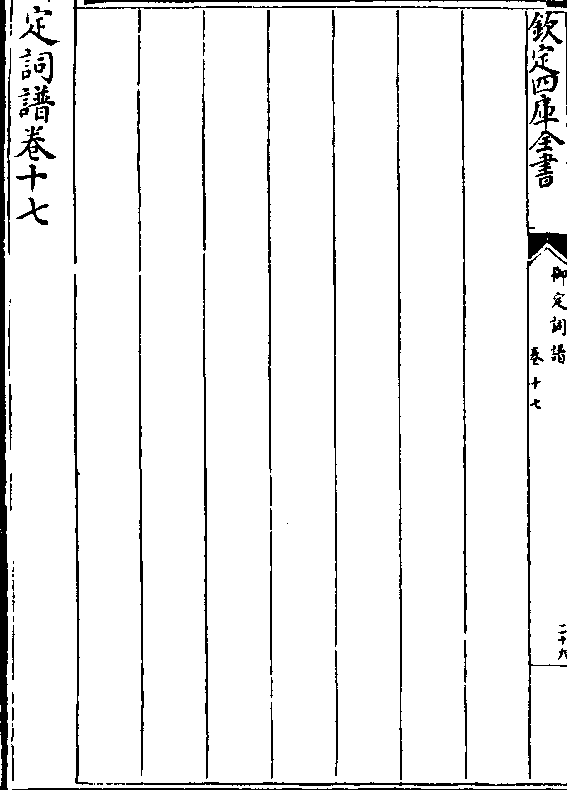 欽定四庫全書
御定詞譜
卷十七
二十九
定詞譜卷十七